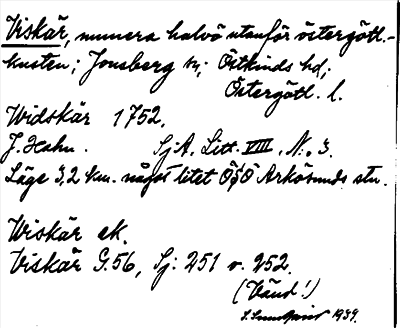 Viskär, numera halvö utanför östergötl.-
kusten; Jonsberg sn; Östkinds hd;
Östergötl. l.
Widskär 1752.
J. Hahn. SjA. Litt. VIII. N:o 3.
Läge 3,2 km. något litet ÖsÖ Arkösunds stn.
Wiskär ek.
Viskär G.56, Sj: 251 o. 252.
(Vänd!)
1939.